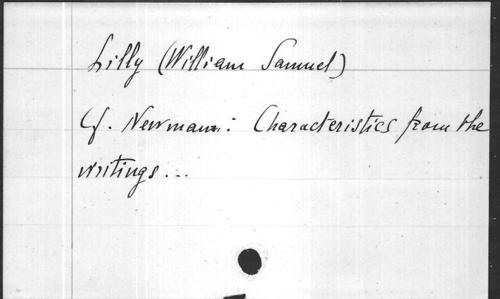 Lilly (William Samuel)
Cf. Newman: Characteristics from the
writings...